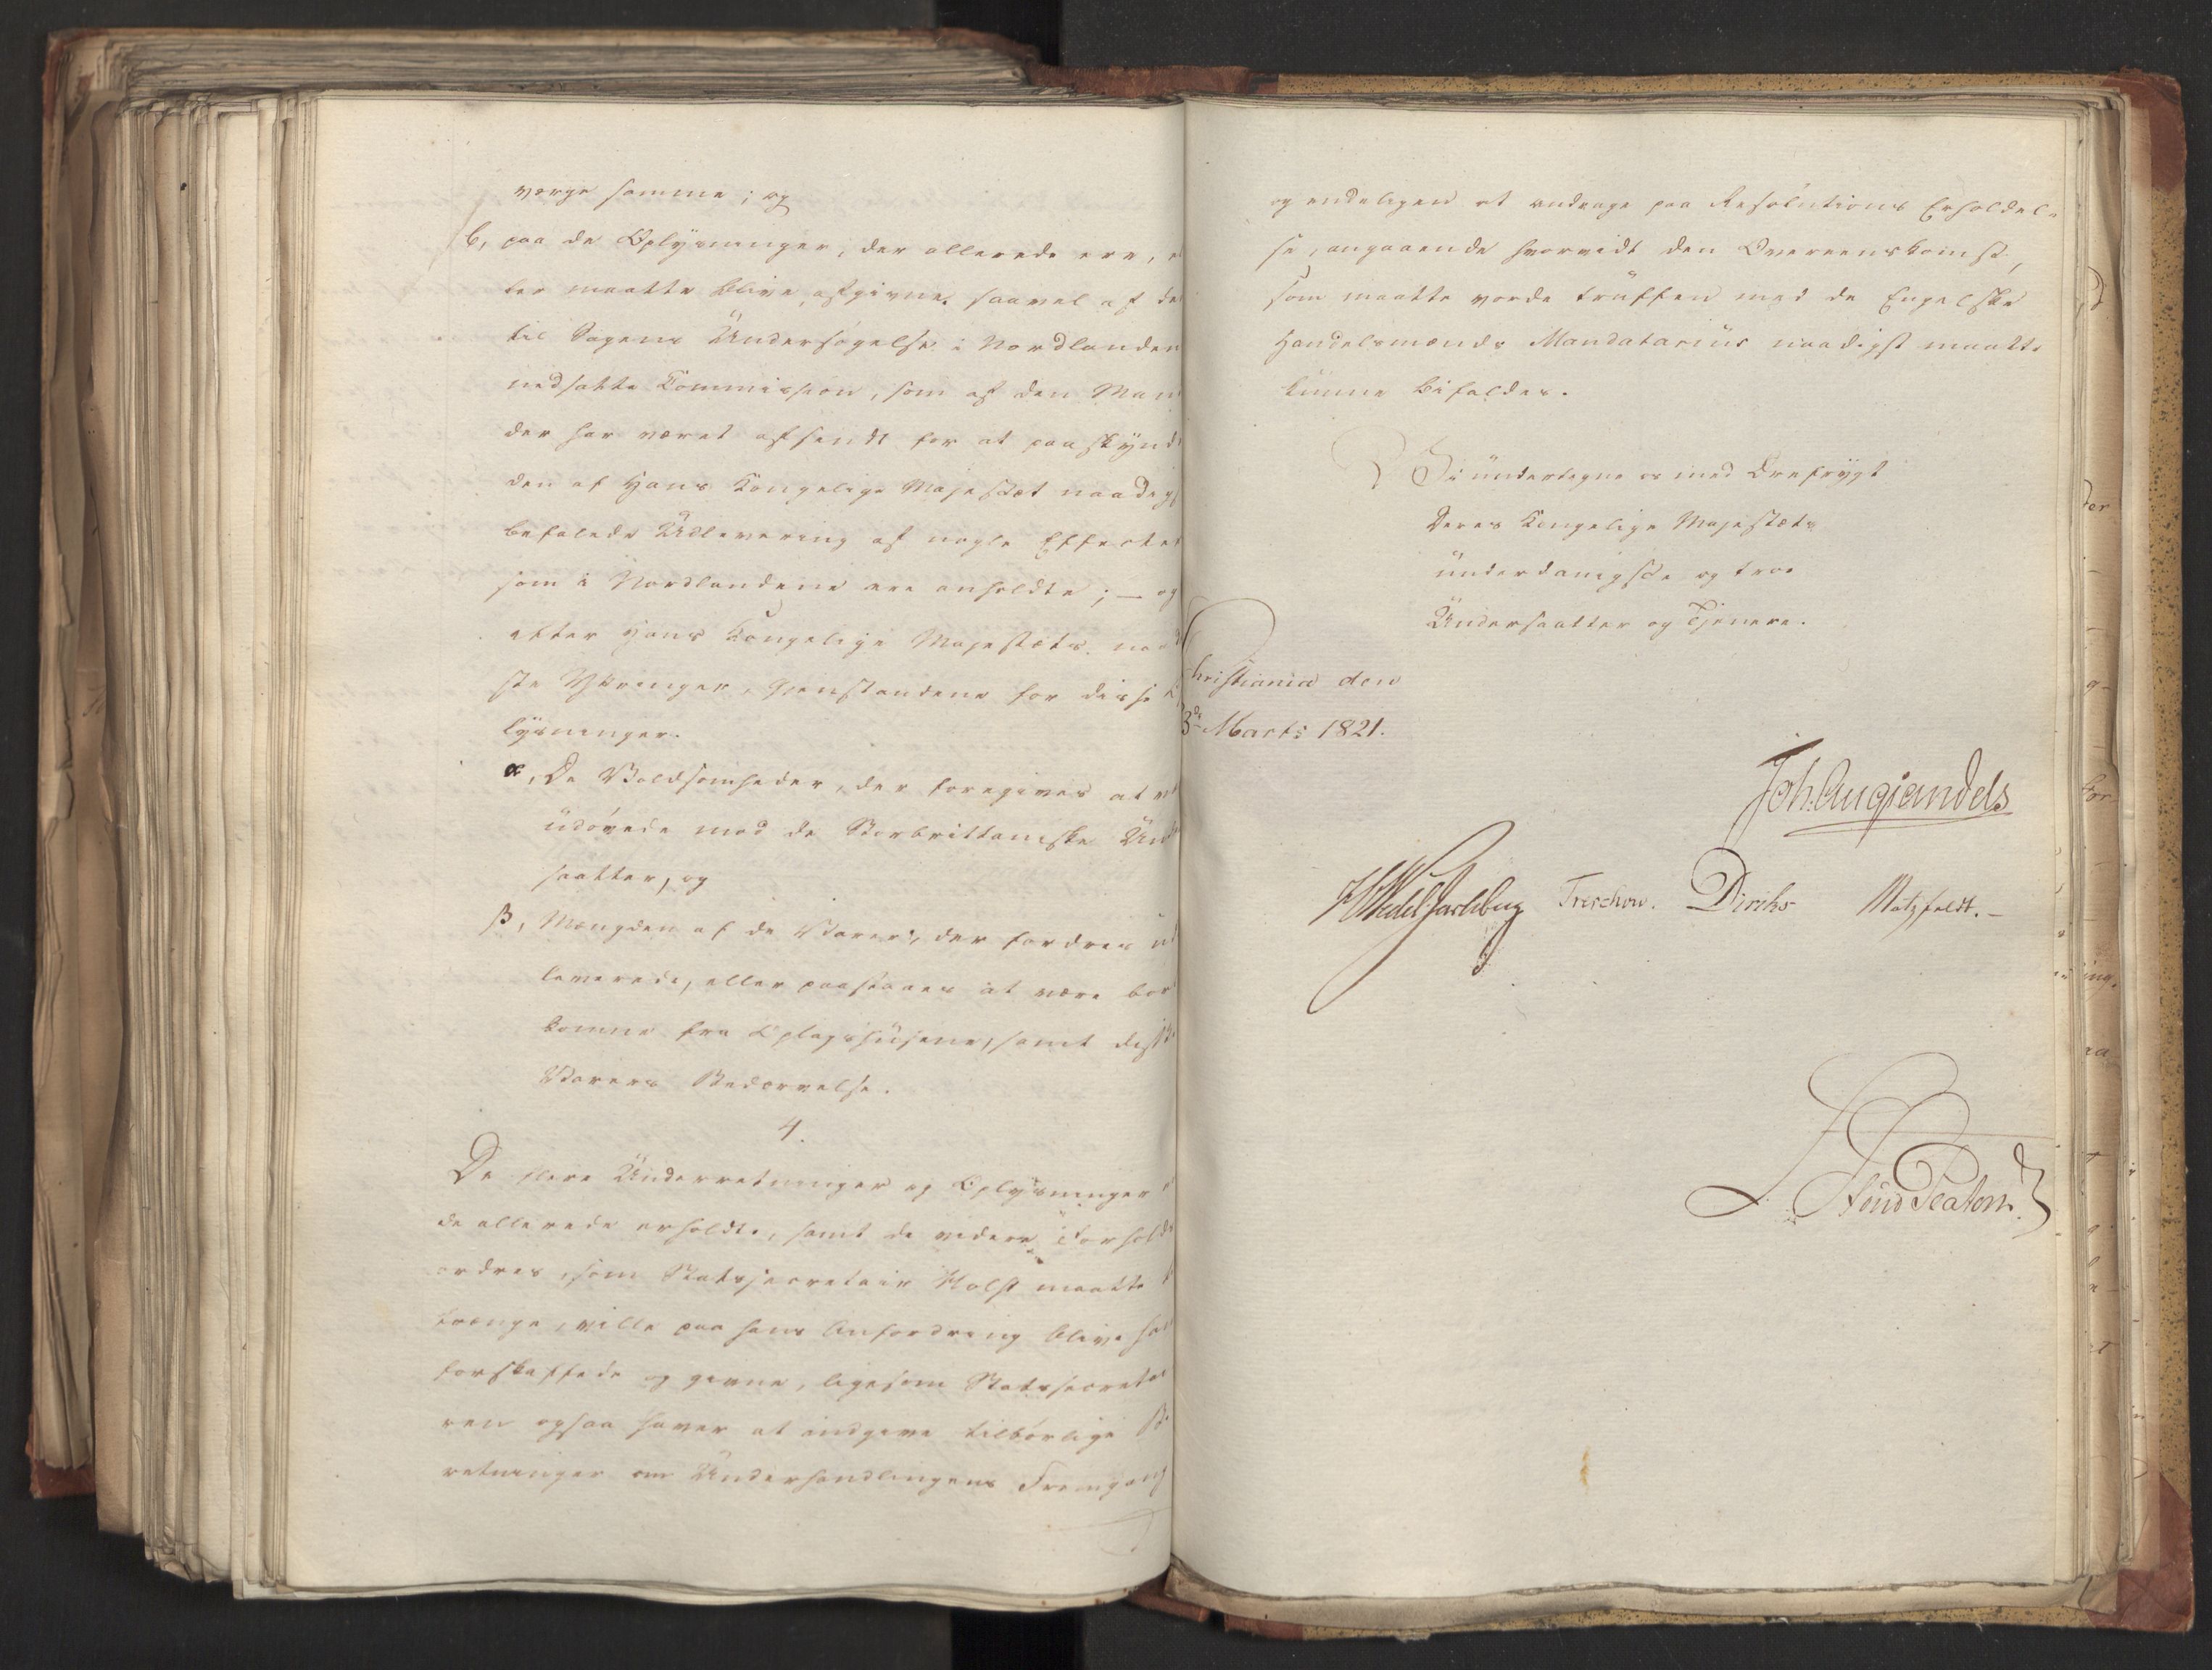 værge samme; og
b, paa de Oplysninger, der allerede ere, el
ler maatte blive afgivne, saavel af de
til Sagens Undersøgelse i Nordlanden
nedsatte Commission, som af den Man
der har været afsendt for at paaskynd
den af Hans Kongelige Majestæt naadigst
befalede Udlevering af nogle Effecter
som i Nordlandene ere anholdte; — og
efter Hans Kongelige Majestæts naad
ste Yttringer, Gjenstandene for disse O
lysninger.
α, De Voldsomheder, der foregives at v
udøvede mod de Storbrittaniske Und
saatter, og
β, Mængden af de Varer, der fordres u
leverede, eller paastaaes at være bort
komne fra Oplagshusene, samt disse
Varers Bedærvelse.
4.
De flere Underretninger og Oplysninger e
de allerede erholdte, samt de videre Forhold
ordres, som Statssecretair Holst maatte
trænge, ville paa hans Anfordring blive ha
forskaffede og givne, ligesom Statssecretai
ren ogsaa haver at indgive tilbørlige Be
retninger om Underhandlingens Fremgang
og endeligen at andrage paa Resolutions Erholdel-
se, angaaende hvorvidt den Overeenskomst,
som maatte vorde truffen med de Engelske
Handelsmænds Mandatarius naadigst maatte
kunne bifaldes.
Vi undertegne os med Ærefrygt
Deres Kongelige Majestæts
underdanigste og troe
Undersaatter og Tjenere.
Christiania den
3de Marts 1821.
Joh. Aug Sandels
HWedel Jarlsberg Treschow. Diriks Motzfeldt. —